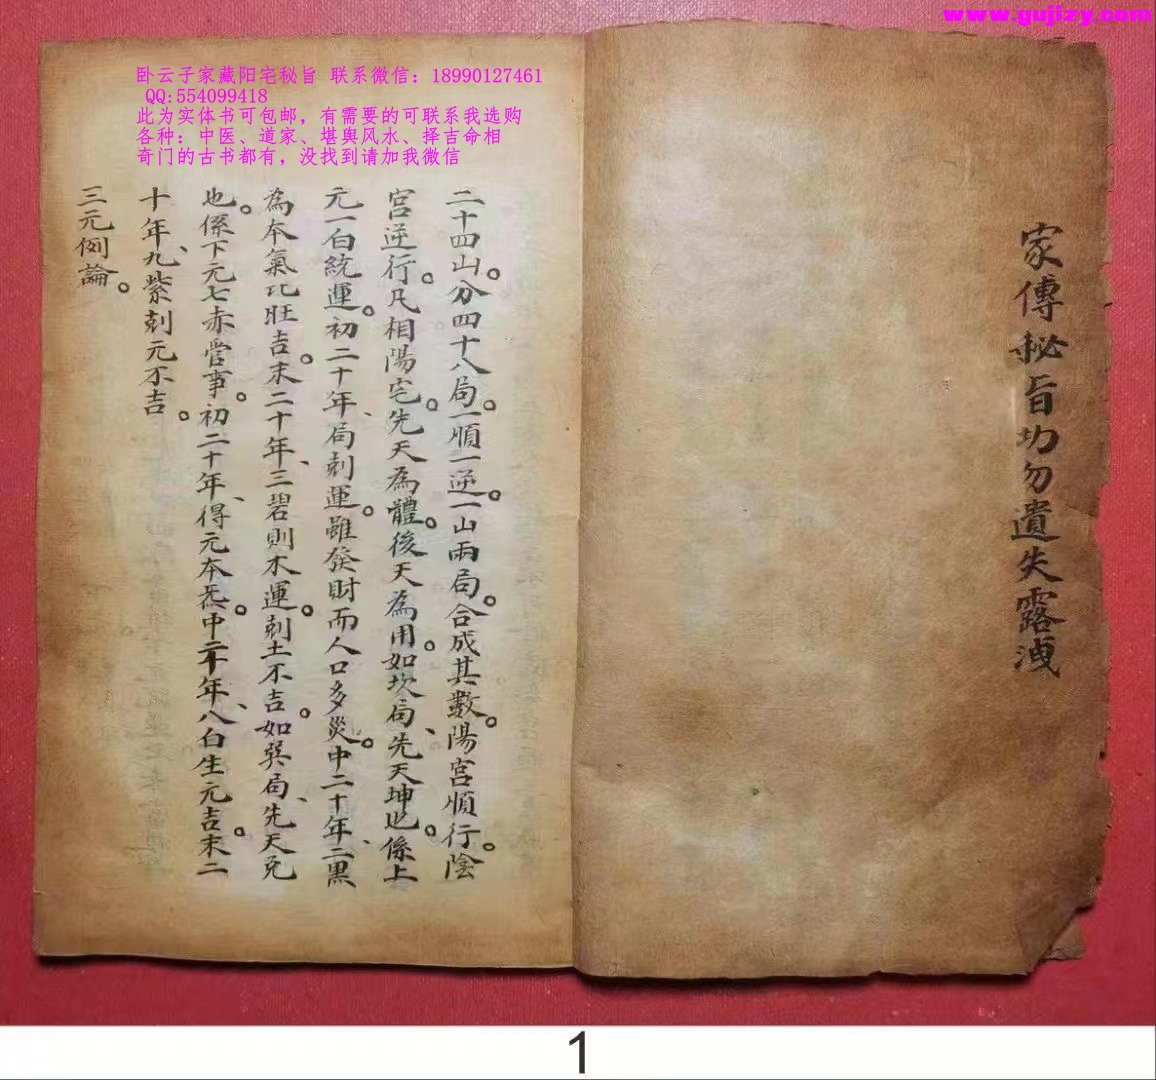 www.gujizy.com
卧云子家藏阳宅秘旨 联系微信：18990127461
QQ:554099418
此为实体书可包邮，有需要的可联系我选购
各种：中医、道家、堪舆风水、择吉命相
奇门的古书都有，没找到请加我微信
家傳秘旨切勿遺失露洩
二十四山。分四十八局。一順一逆。一山兩局。合成其數。陽宮順行。陰
宮逆行。凡相陽宅。先天為體。後天為用。如坎局、先天坤也。係上
元一白統運。初二十年、局剋運。雖發財而人口多災。中二十年、二黑
為本氣比旺吉。末二十年、三碧則木運。剋土不吉。如巽局、先天兌
也。係下元七赤管事。初二十年、得元本炁。中二十年、八白生元吉。末二
十年、九紫剋元不吉。
三元例論。
1